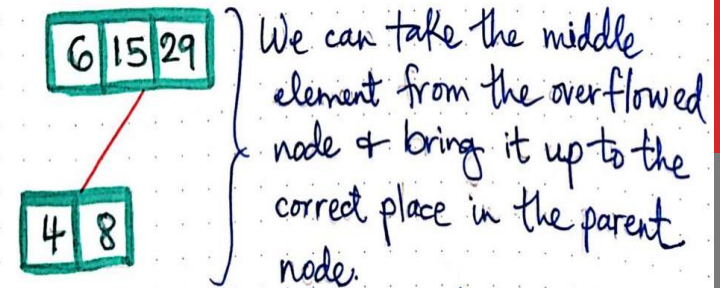 6 15 29
4 8
We can take the middle
element from the overflowed
node & bring it up to the
correct place in the parent
node.